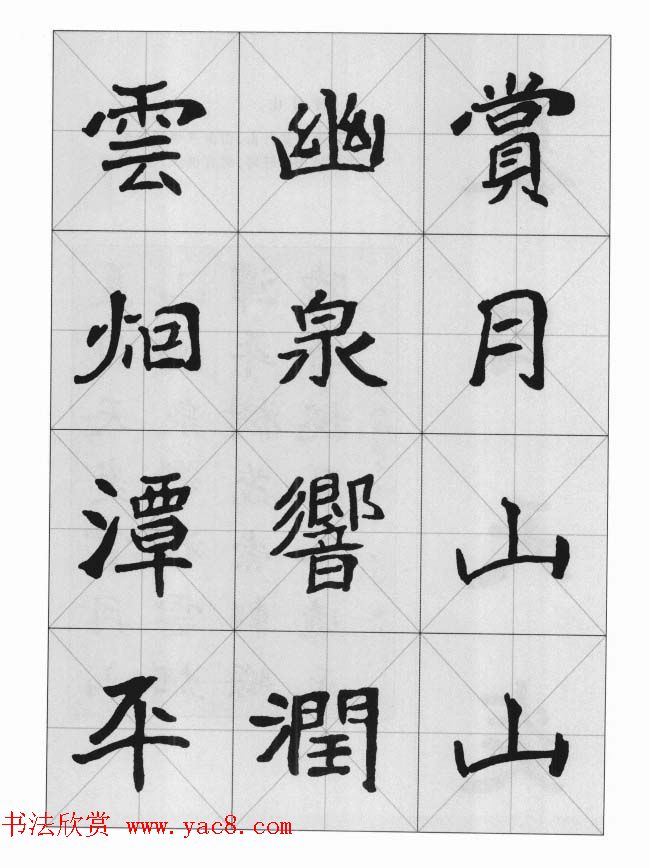 賞月山山
幽泉響潤
雲烟潭平
书法欣赏 www.yac8.com